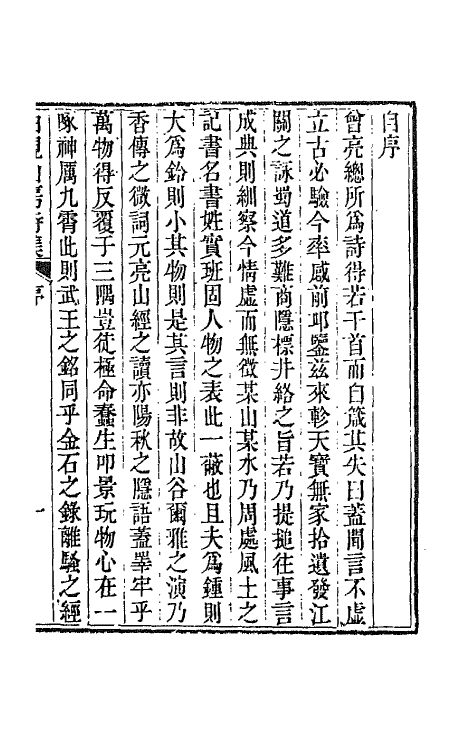 自序
曾亮總所爲詩得若干首而自箴其失曰蓋聞言不虛
立古必驗今率感前邛鑒兹來軫天寶無家拾遺發江
關之詠蜀道多難商隱標井絡之旨若乃提搥往事言
成典則紃察今情虛而無徵某山某水乃周處風土之
記書名書姓實班固人物之表此一蔽也且夫爲鍾則
大爲鈴則小其物則是其言則非故山谷爾雅之演乃
香傳之微詞元亮山經之讀亦陽秋之隱語蓋羃牢乎
萬物得反覆于三隅豈徒極命蠢生叩景玩物心在一
啄神厲九霄此則武王之銘同乎金石之錄離騷之經
柏梘山房詩集 序 一